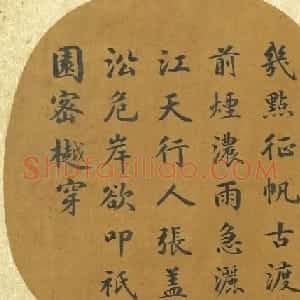 幾點征帆古渡
前煙濃雨急灑
江天行人張蓋
沿危岸欲叩祇
園密樾穿
Shufaziliao.com